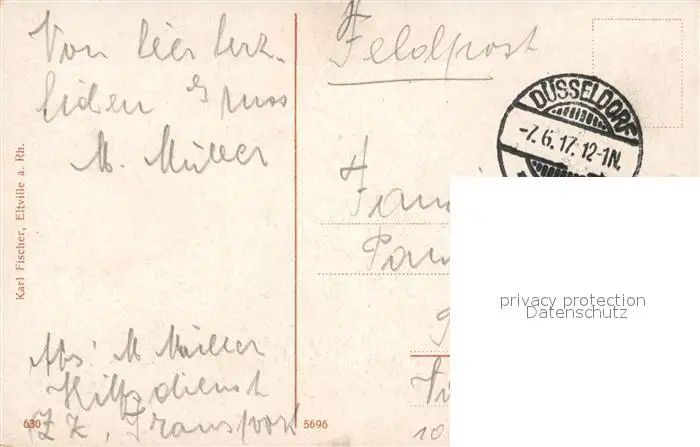 Von hier herz-
lichen Gruss
M. Müller
Karl Fischer, Eltville a. Rh.
Abs. M Müller
Hilfsdienst
Transport
630
5696
Feldpost
DÜSSELDORF
-7.6.17. 12-1N.
privacy protection
Datenschutz
10